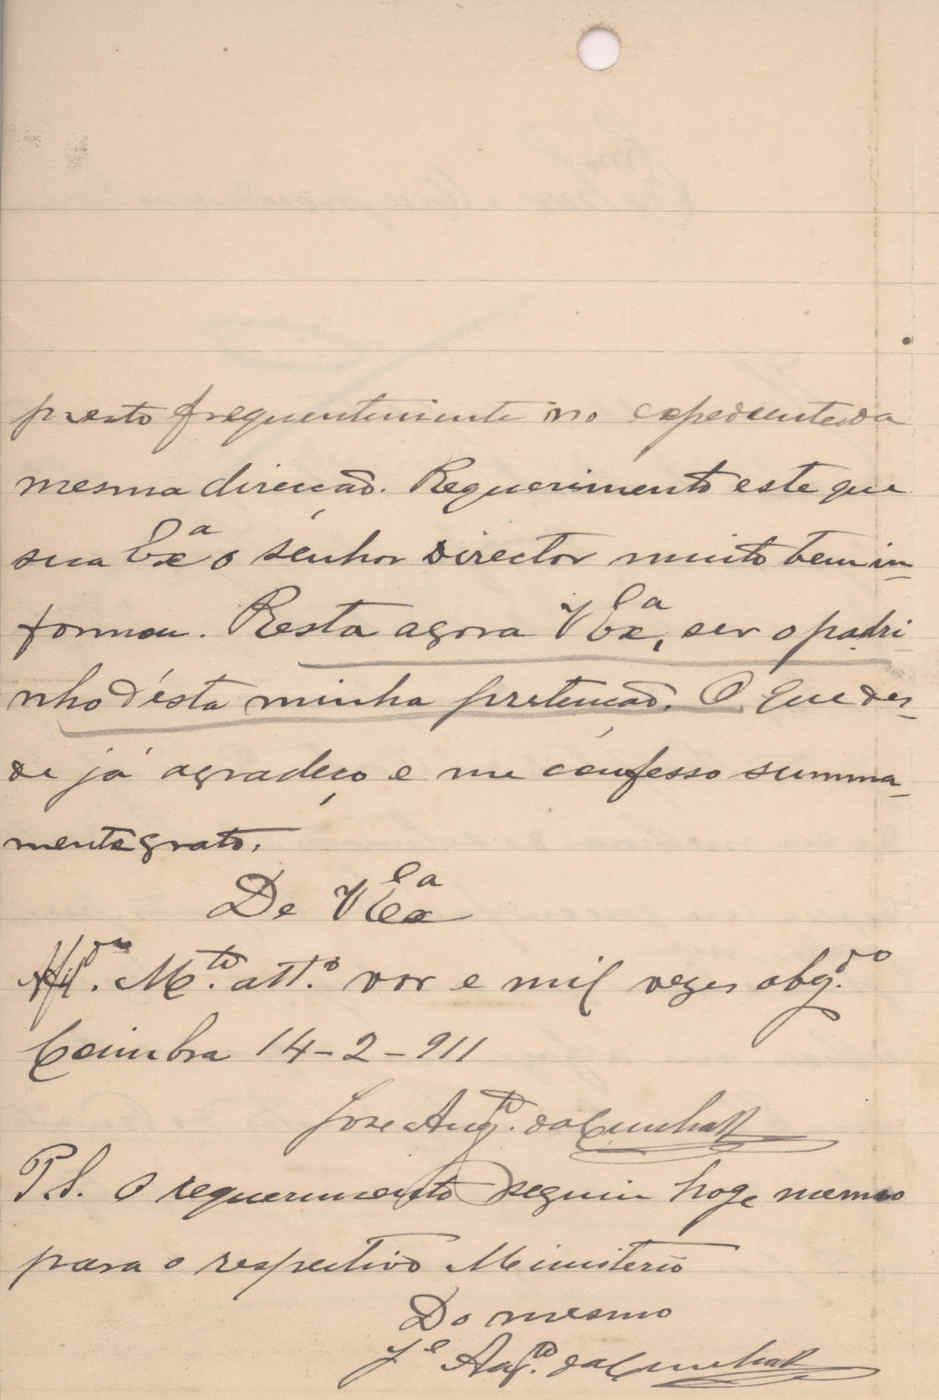 presto frequentemente no expediente da
mesma direcção. Requerimento este que
sua Exª o senhor Director muito bem in-
formou. Resta agora V Exª, ser o padri-
nho d'ésta minha pretenção. O que des-
de já agradeço e me confesso summa-
mente grato.
De V Exª
M.to att.o vor e mil vezes obg.do
Coimbra 14-2-911
José Aug.to da Cunha
P.S. O requerimento seguiu hoge mesmo
para o respectivo Ministerio
Do mesmo
J.e Aug.to da Cunha